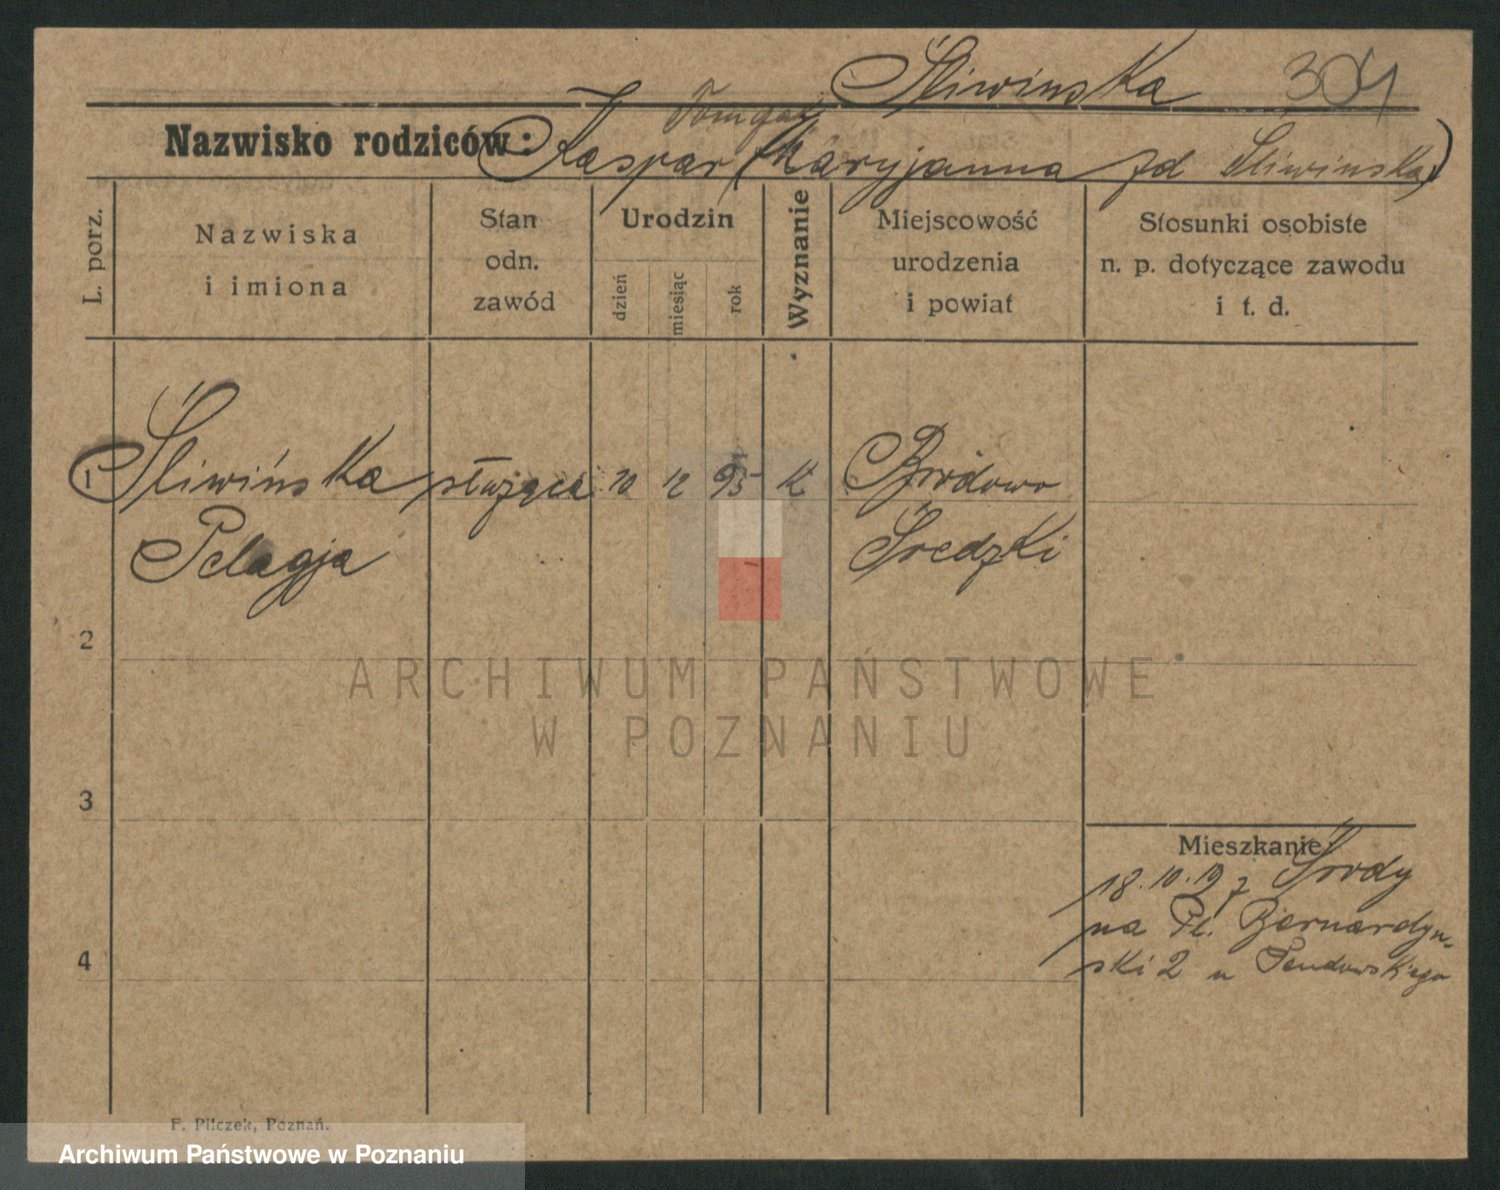 Śliwinska 304
Tomgas
Nazwisko rodziców: Kaspar (Maryjanna zd Śliwinska)
L. porz.
Nazwiska i imiona
Stan odn. zawód
Urodzin
dzień
miesiąc
rok
Wyznanie
Miejscowość urodzenia i powiat
Stosunki osobiste n. p. dotyczące zawodu i t. d.
1 Śliwińska służąca 10 12 95 K Brodowo
Pelagja Średzki
2
3
4
Mieszkanie:
18.10.19 z Środy
na Pl. Bernardyn-
ski 2 u
F. Pilczek, Poznań.
ARCHIWUM PAŃSTWOWE
W POZNANIU
Archiwum Państwowe w Poznaniu